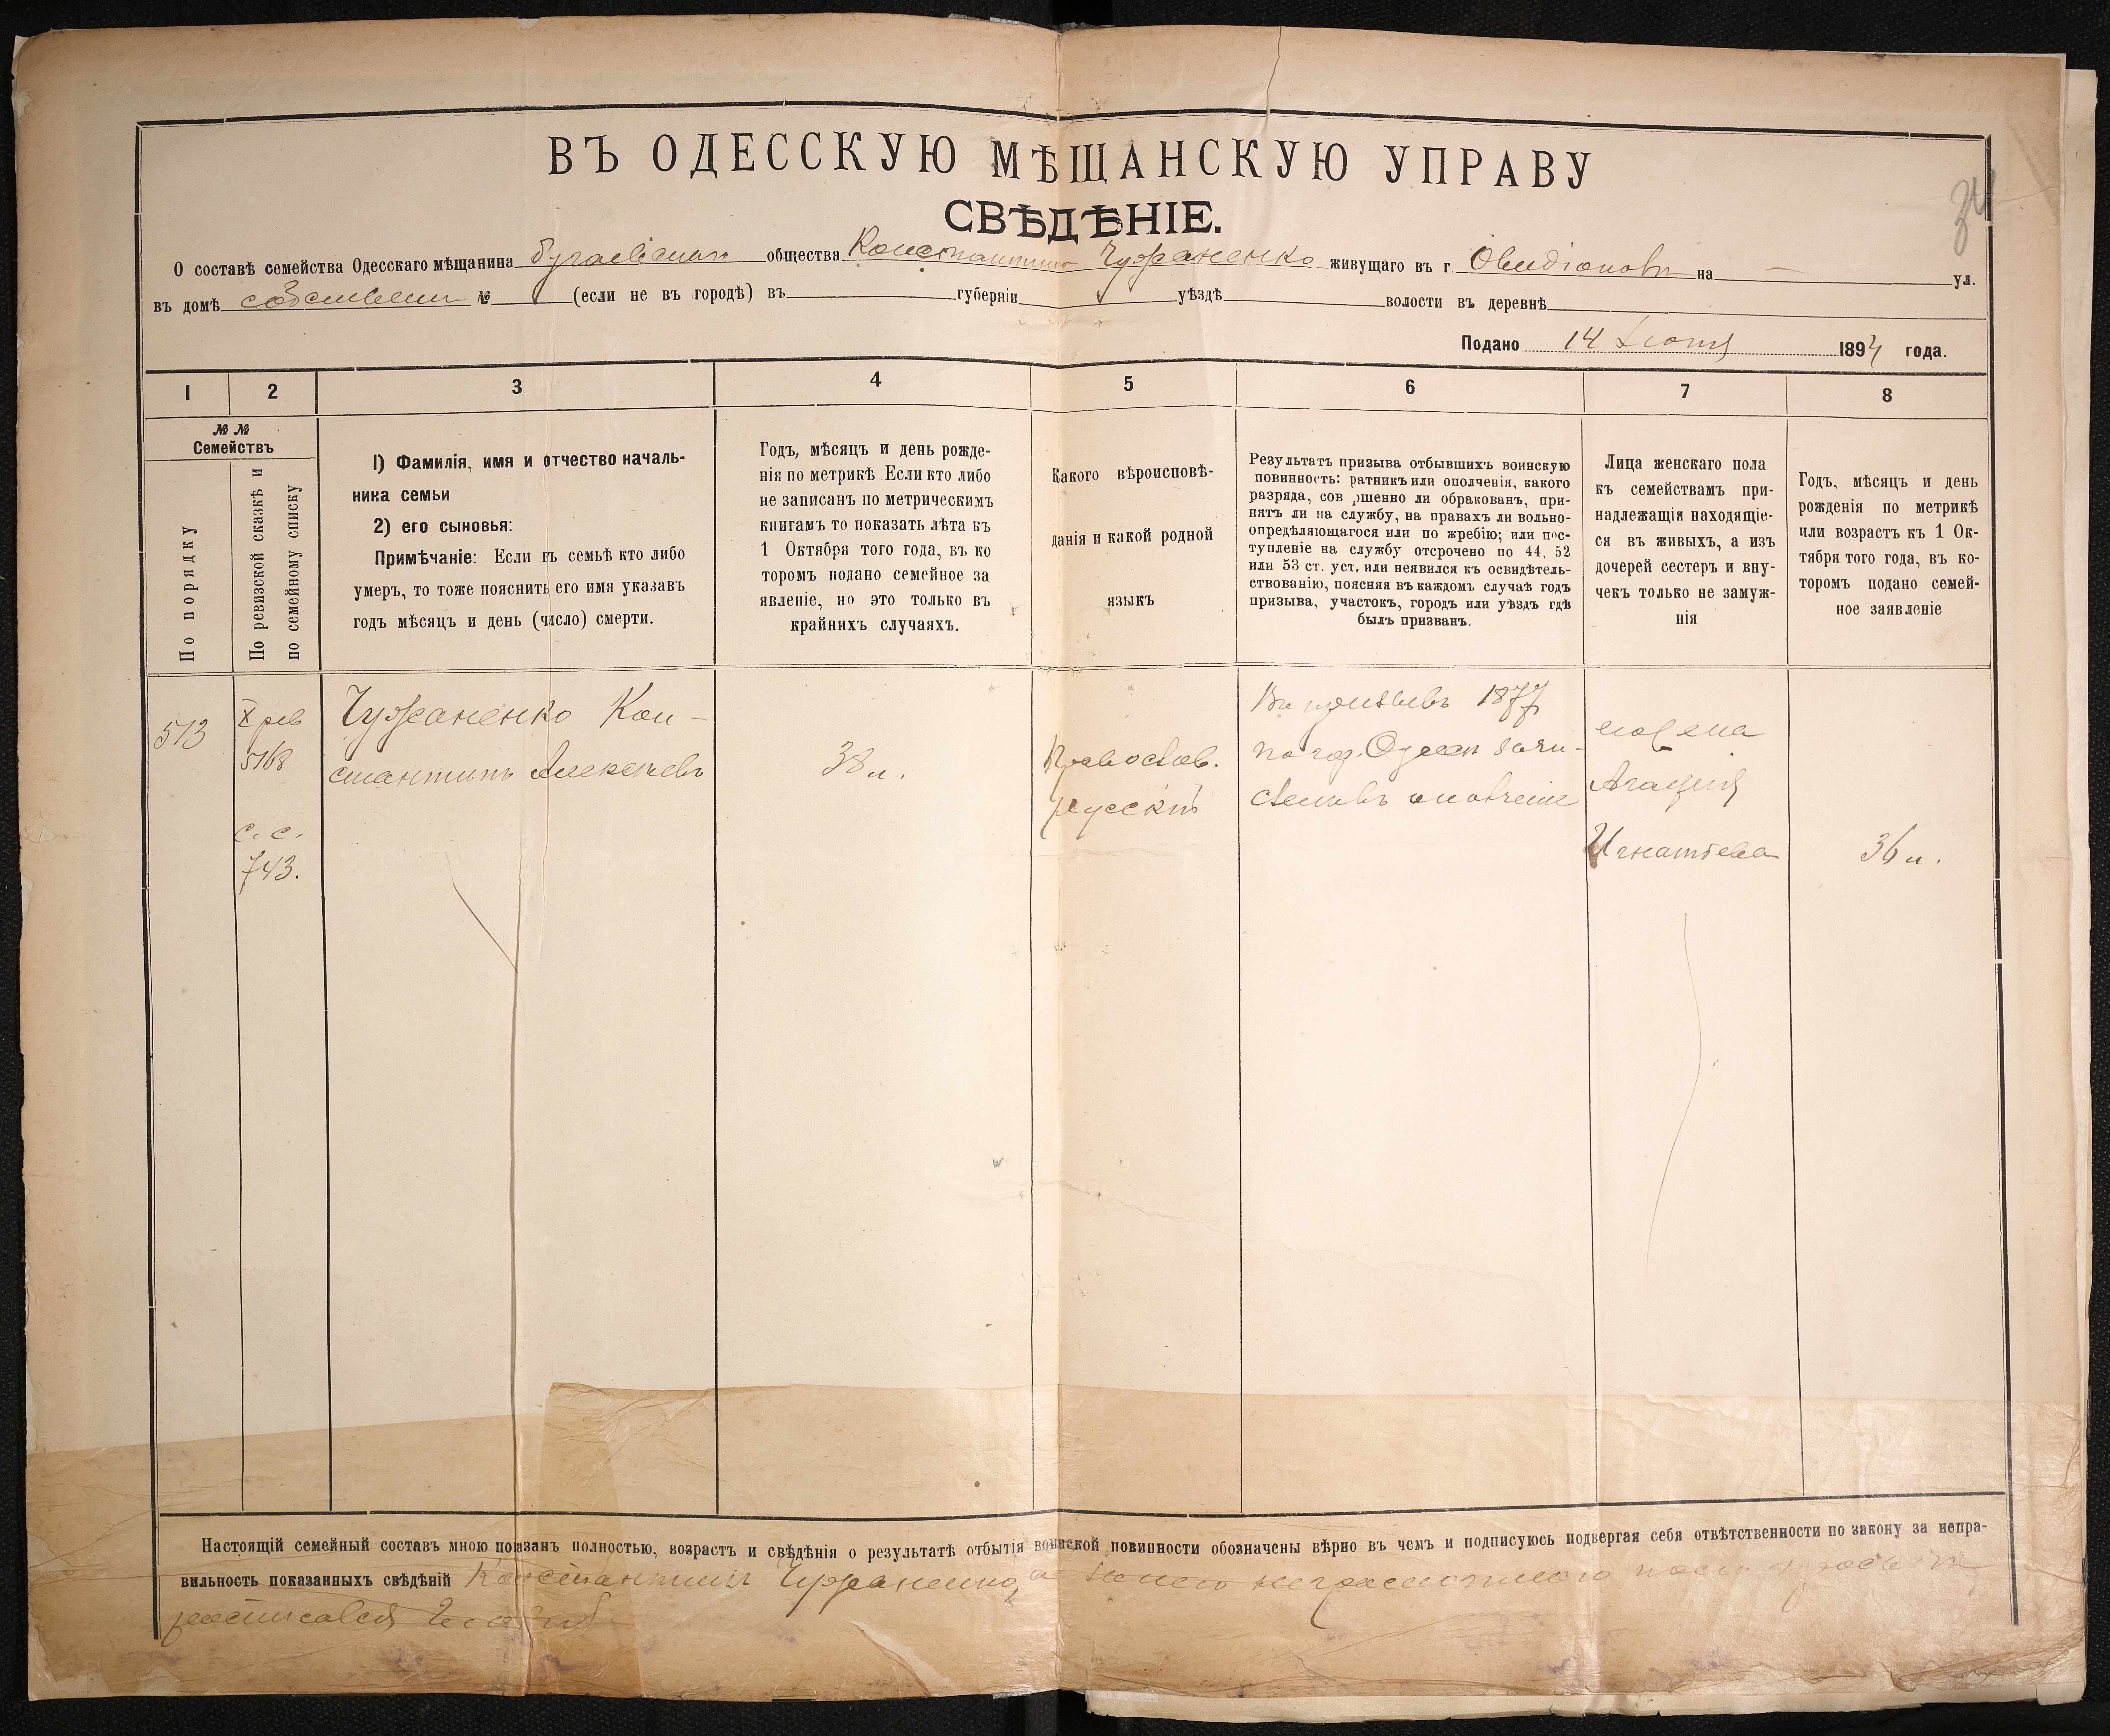 34
ВЪ ОДЕССКУЮ МѢЩАНСКУЮ УПРАВУ
СВѢДѢНІЕ.
О составѣ семейства Одесскаго мѣщанина общества Константина Чужаненко живущаго въ г Овидіополѣ на — ул.
въ домѣ собственн № (если не въ городѣ) въ губерніи уѣздѣ волости въ деревнѣ
Подано 14 1894 года.
1 2 3 4 5 6 7 8
№ №
Семействъ
По порядку
По ревизской сказкѣ и
по семейному списку
1) Фамилія, имя и отчество началь-
ника семьи
2) его сыновья:
Примѣчаніе: Если въ семьѣ кто либо
умеръ, то тоже пояснить его имя указавъ
годъ мѣсяцъ и день (число) смерти.
Годъ, мѣсяцъ и день рожде-
нія по метрикѣ Если кто либо
не записанъ по метрическимъ
книгамъ то показать лѣта къ
1 Октября того года, въ ко
торомъ подано семейное за
явленіе, но это только въ
крайнихъ случаяхъ.
Какого вѣроисповѣ-
данія и какой родной
языкъ
Результатъ призыва отбывшихъ воинскую
повинность: ратникъ или ополченія, какого
разряда, сов ршенно ли обракованъ, при-
нятъ ли на службу, на правахъ ли вольно-
опредѣляющагося или по жребію; или пос-
тупленіе на службу отсрочено по 44, 52
или 53 ст. уст, или неявился къ освидѣтель-
ствованію, поясняя въ каждомъ случаѣ годъ
призыва, участокъ, городъ или уѣздъ гдѣ
былъ призванъ.
Лица женскаго пола
къ семействамъ при-
надлежащія находящіе-
ся въ живыхъ, а изъ
дочерей сестеръ и вну-
чекъ только не замуж-
нія
Годъ, мѣсяцъ и день
рожденія по метрикѣ
или возрастъ къ 1 Ок-
тября того года, въ ко-
торомъ подано семей-
ное заявленіе
513
X рев
5168
с. с.
743.
Чужаненко Кон-
стантинъ Алексѣевъ
38 л.
Православ.
русскій
Въ призывъ 1877
по гор. Одессѣ зачи-
сленъ въ ополченіе
жена
Агафія
Игнатьева
36 л.
Настоящій семейный составъ мною показанъ полностью, возрастъ и свѣдѣнія о результатѣ отбытія воинской повинности обозначены вѣрно въ чемъ и подписуюсь подвергая себя отвѣтственности по закону за непра-
вильность показанныхъ свѣдѣній Константинъ Чужаненко, а за него неграмотнаго
росписался